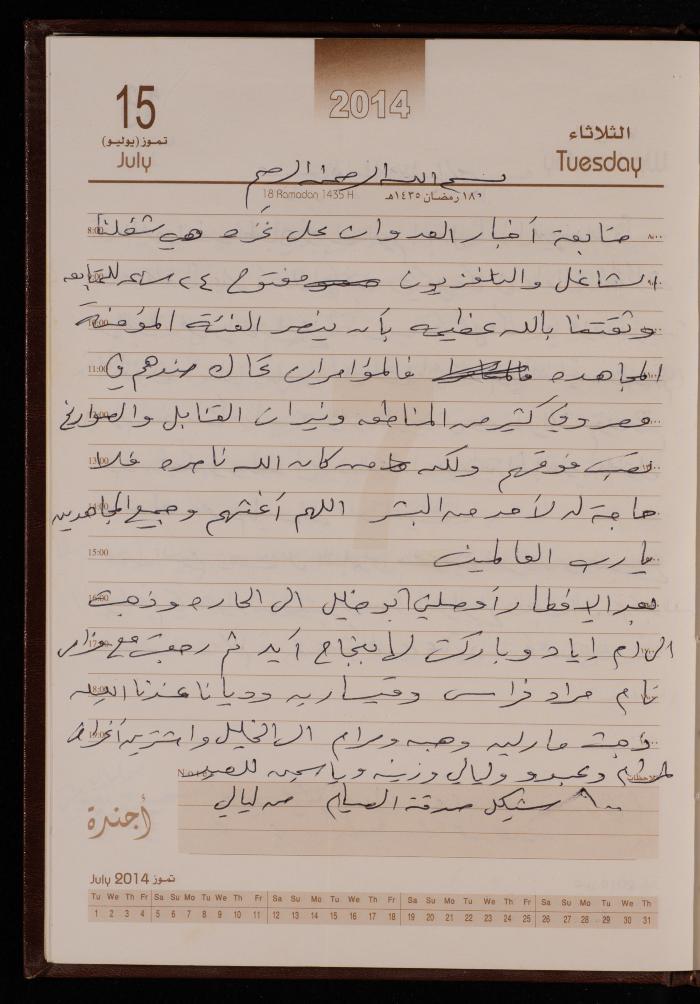 2014
15
تموز (يوليو)
July
الثلاثاء
Tuesday
بسم الله الرحمن الرحيم
18 Ramadan 1435 H
١٨ رمضان ١٤٣٥هـ
متابعة أخبار العدوان على غزه هي شغلنا
الشاغل والتلفزيون مفتوح ٢٤ ساعه للمتابعه
وثقتنا بالله عظيمه بأن ينصر الفئة المؤمنة
المجاهده فالمؤامرات تحاك ضدهم في
مصر وفي كثير من المناطق ونيران القنابل والصواريخ
تصب فوقهم ولكن من كان الله ناصره فلا
حاجة له لأحد من البشر اللهم أغثهم وجميع المجاهدين
يا رب العالمين
بعد الإفطار أوصلني أبو خليل الى الحاره وذهبت
الى ام إياد وباركت لها بنجاح آيه ثم رجعت مع
نام مراد فراس وقيساريه وديانا عندنا الليله
ذهبت مارلين وهبه ومرام الى الخليل واشترين
وعبدو وليالي وزينه وياسمين للعيد
٨٠٠ شيكل صدقة الصيام من ليالي
8:00
11:00
13:00
15:00
16:00
17:00
18:00
19:00
الملاحظات
Notes
أجندة
July 2014 تموز
Tu We Th Fr Sa Su Mo Tu We Th Fr Sa Su Mo Tu We Th Fr Sa Su Mo Tu We Th Fr Sa Su Mo Tu We Th
1 2 3 4 5 6 7 8 9 10 11 12 13 14 15 16 17 18 19 20 21 22 23 24 25 26 27 28 29 30 31